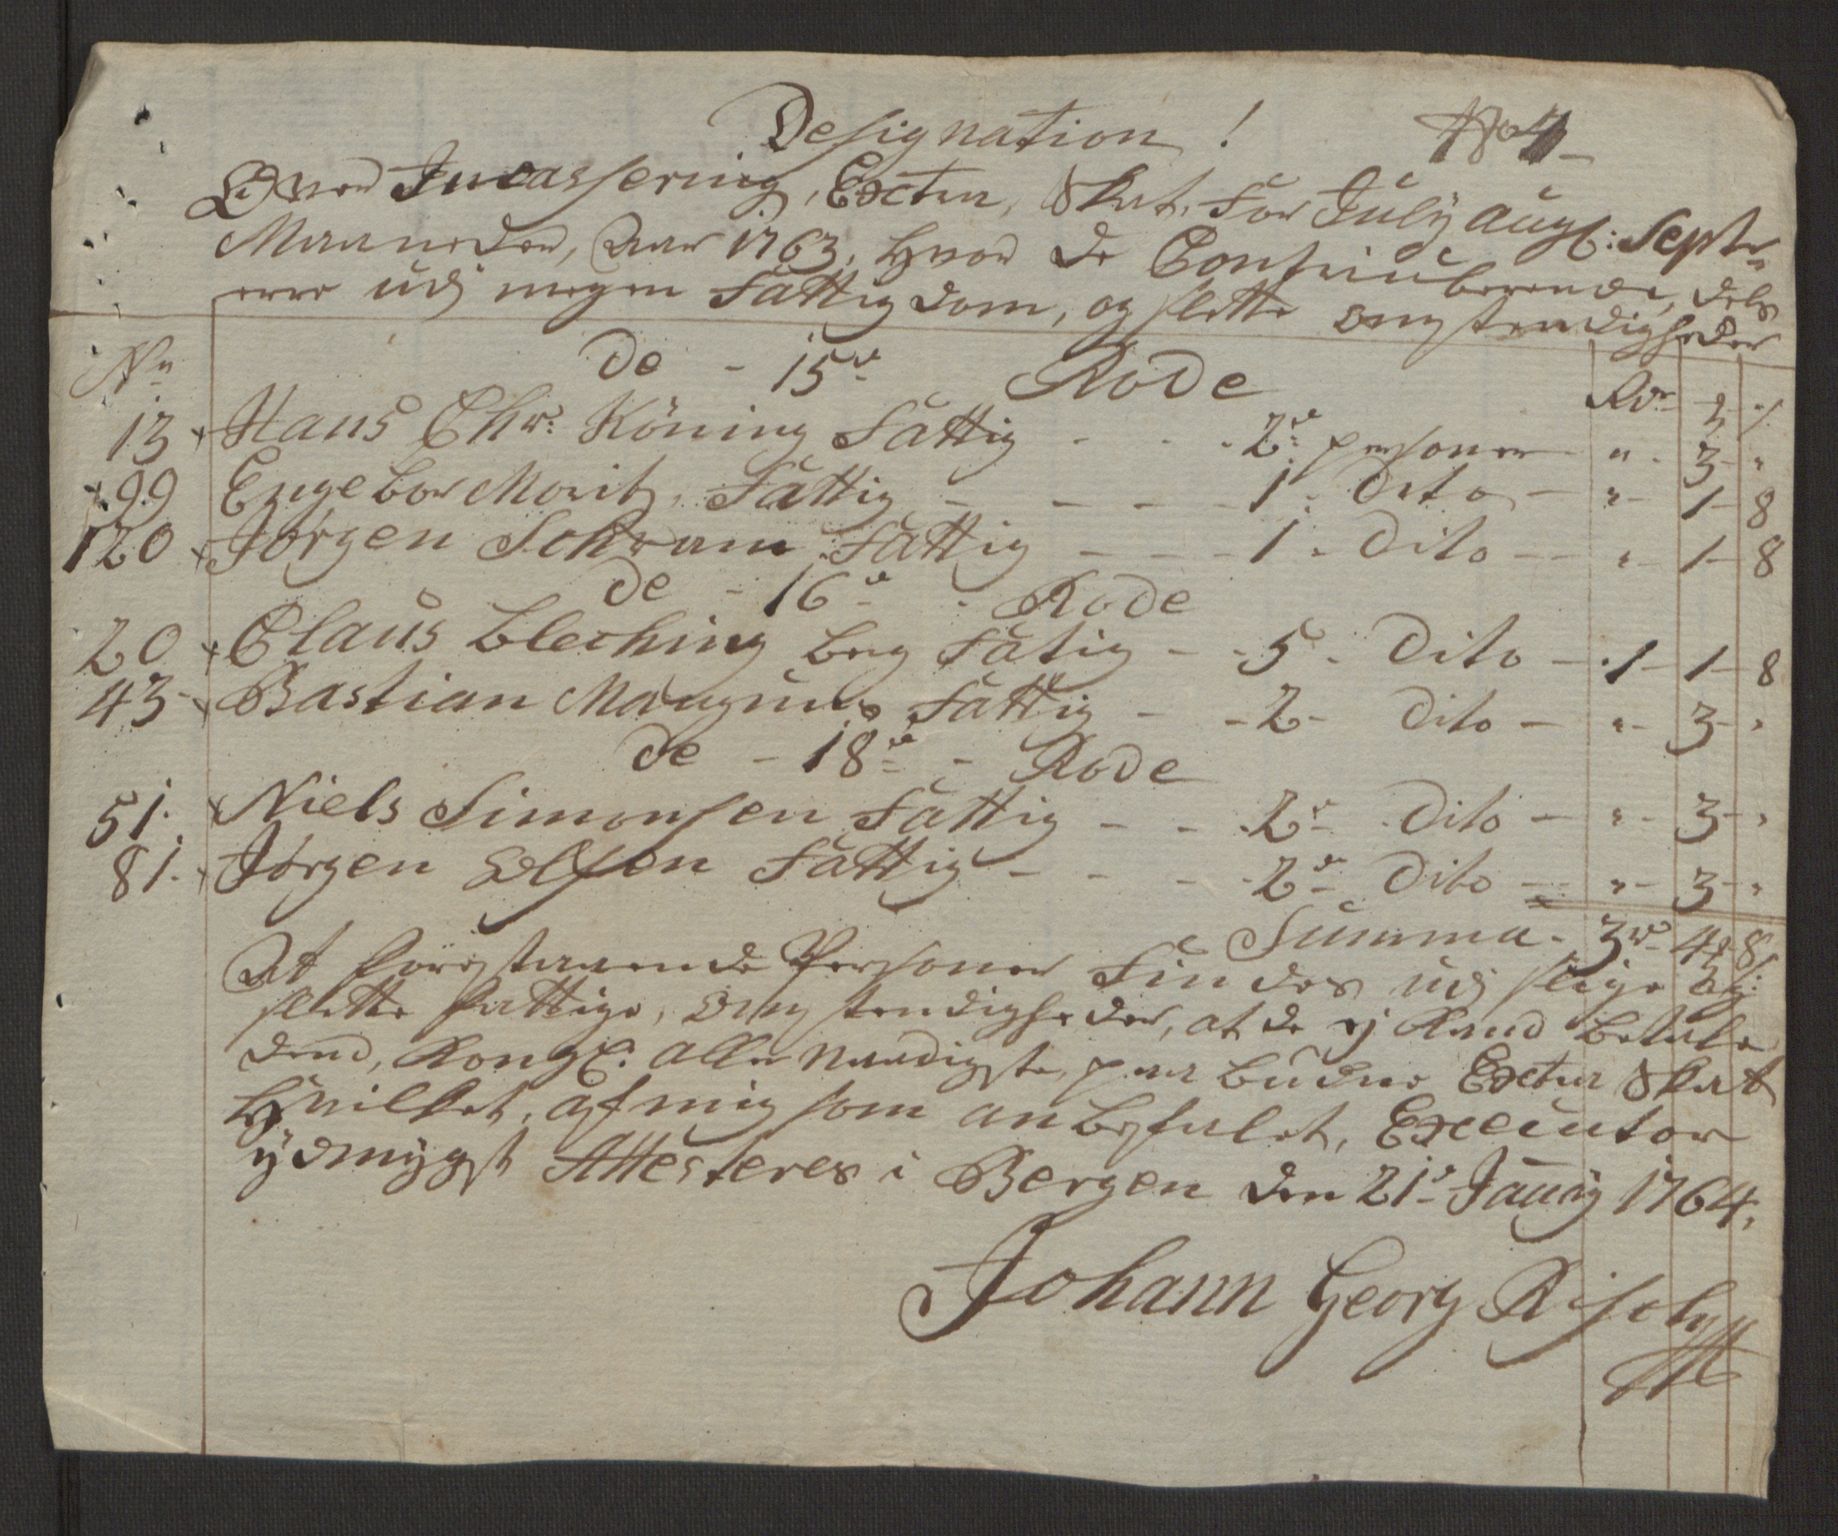 Designation!
No 4
Over Incasering, Exctra, Skat, for July augs: Septr
Maaneder, Aar 1763, hvor de Contriuberende, dels
erre udj megen Fattigdom, og slette omstendigheder
No de - 15de Rode Rdr ₰ s
13 Hans Chr: Köning Fattig - - - 2de personer " 3 "
99 Engebor Morit, Fattig - - - 1 - Dito - " 1 8
120 Jørgen Schram Fattig - - - 1 - Dito - " 1 8
de - 16de - Rode
20 Claus Bleching beg Fatig - - 5 - Dito - 1 - 1 - 8
43 Bastian Mangnus Fattig - - 2 - Dito - " 3 - "
de - 18de - Rode
51. Niels Simonsen Fattig - - 2de Dito - " 3 - "
81. Jørgen Olsen Fattig - - - 2de Dito - " 3 - "
Summa - 3rd 4₰ 8s
At forestaaende Personer Findes udj slige
slette fattige, omstendigheder, at de ej Kand betale
dend, Kongl: aller naadigste, paa budne Exctra Skat
Hvilket, af mig som anbefalet, Executor
ydmygst Attesteres i Bergen den 21de Jauarij 1764,
Johann Georg Risch